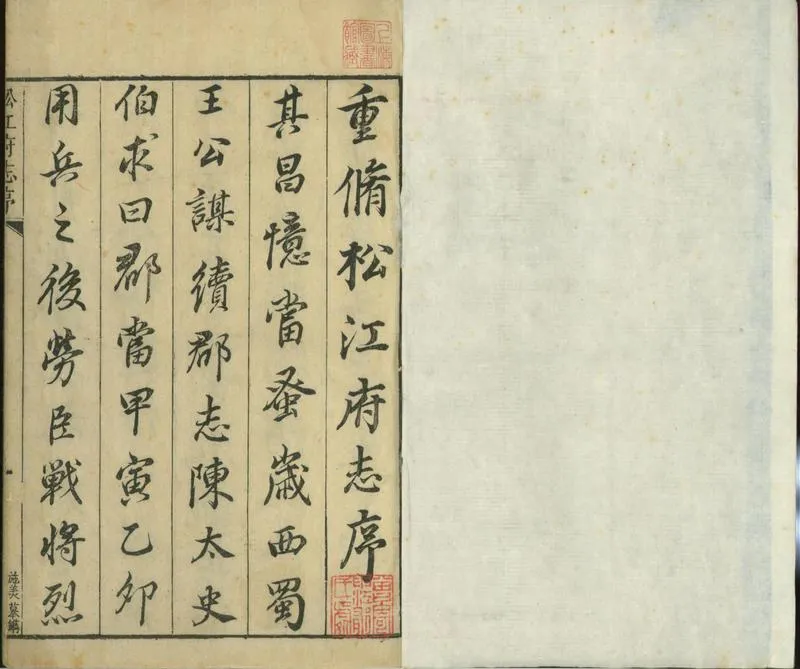 上海圖書館藏
重脩松江府志序
其昌憶當蚤歲西蜀
王公謀續郡志陳太史
伯求曰郡當甲寅乙卯
用兵之後勞臣戰將烈
松江府志序